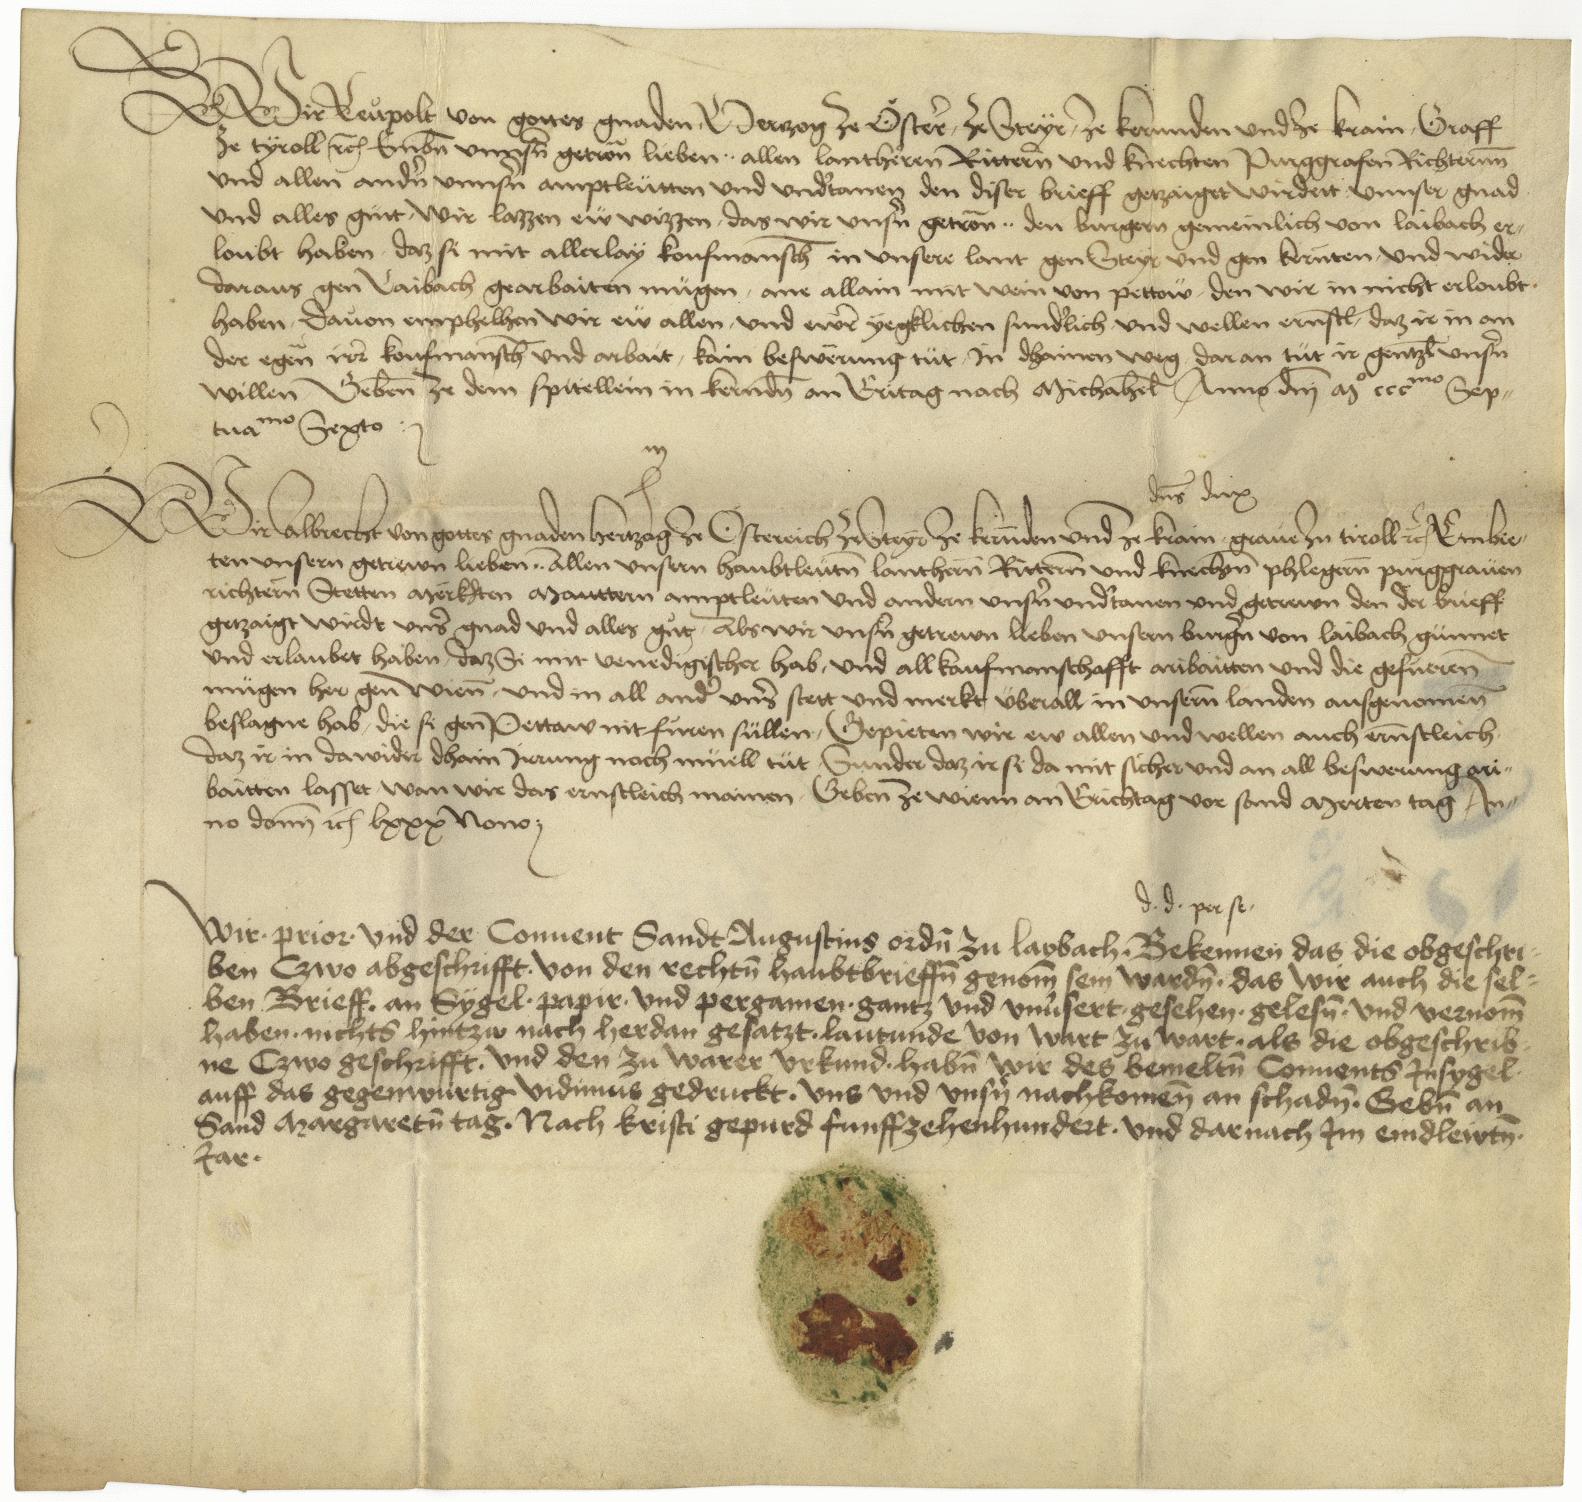 Wir Leupolt von gottes gnaden Hertzog ze Österr ze Steyr ze kernnden und ze krain Graff
ze tyroll etc Embn unnsn getron lieben allen lantherren Rittern und knechten Purggrafen Richternn
und allen andn unnsn amptleütten und undtanen den diser brieff getzaiget wirdett unnser gnad
und alles güt Wir lazzen eü wizzen das wir unsn getron den burgern gemeinlich von laibach er-
loubt haben daz si mit allerlay koufmansch in unsere lant gen Steyr und gen kernten und wider
daraus gen Laibach gearbaiten mügen ane allain mit wein von pettow den wir in nicht erloubt
haben Dauon emphelhen wir eü allen und ewr yegklichen sundlich und wellen ernstl daz ir in an
der egen irr koufmansch und arbait kain beswerung tüt in dhainen weg daran tüt ir gentzl unsn
willen Geben ze dem spitellein in kernden an Eritag nach Michahel Anno dni Mo cccmo Sep-
tuamo Sexto
dns dux
Wir Albrecht von gottes gnaden hertzog ze Österreich ze Steyr ze kernnden und ze krain graue zu tiroll etc Embie-
ten unsern getrewn lieben Allen unsern haubtleütn lanthern Rittern und knechtn phlegern purggrauen
richtern Stetten Merkten Mauttern amptleüten und andern unsn undtanen und getrewn den der brieff
getzaigt wirdt unsr gnad und alles güt Als wir unsn getrewn lieben unsern burgn von laibach günnet
und erlaubet haben daz Si mit venedigischer hab und all kaufmanschafft aribaitten und die gefüeren
mügen her gen Wienn und in all andr unsr stett und merkt überall in unsern landen ausgenomen
beslagne hab die si gen Pettaw nit füren süllen Gepieten wir ew allen und wellen auch ernstleich
daz ir in dawider dhain Irrung noch müell tüt Sunder daz ir si da mit sicher und an all beswerung ari-
baitten lasset wan wir das ernstleich mainen Geben ze wienn an Erichtag vor sand Merten tag An-
no domi etc lxxx Nono
d. d. per se.
Wir prior und der Conuent Sandt Augustins ordn zu laybach. Bekennen das die obgeschri-
ben Czwo abgeschrifft von den rechtn haubtbrieffn genom sein wardn. das wir auch die sel-
ben Brieff. an Sygel. papir. und pergamen. gantz und unusert gesehen. gelesn. und vernom
haben. nichts hintzw nach herdan gesatzt. lautunde von wart zu wart. als die obgeschrib-
ne Czwo geschrifft. und den zu warer urkund. habn wir des bemeltn Conuents Insygel
auff das gegenwürtig vidimus gedruckt. uns und unsn nachkomen an schadn. Gebn an
Sand Margaretn tag. Nach kristi gepurd funffzehenhundert. und darnach Im eindleiwtn.
Jar.